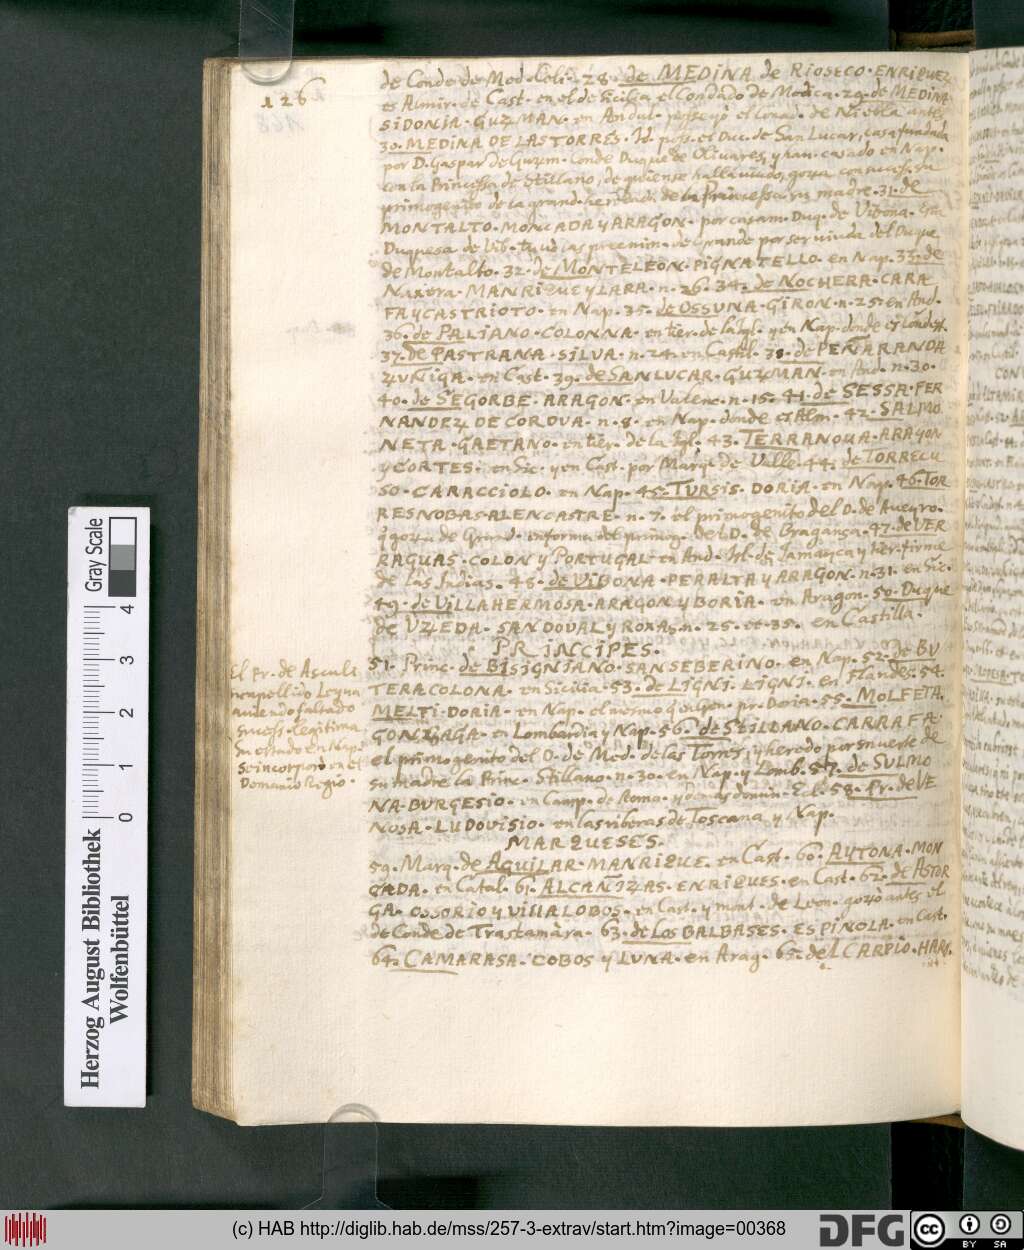 126
de Conde de Med. Celi. 28. de MEDINA de RIOSECO. ENRIQUEZ
es Almir. de Cast. en el de Sicilia el Condado de Modica. 29. de MEDINA
SIDONIA. GUZMAN. en Andul. posseyò el Conad. de Niebla antes
30. MEDINA DE LAS TORRES. Id. poss. el Duc. de San Lucar, casa fundada
por D. Gaspar de Guzm. Conde Duque de Olivares, y han. casado en Nap.
con la Princessa de Stillano, de quien se halla viudo, goza con su
primogenito de la grand. de la Princessa su madre. 31. de
MONTALTO. MONCADA y ARAGON. por casam. Duq. de Vibona. Esta
Duquesa de Vib. tuvo las preemin. de Grande por ser viuda del Duque
de Montalto. 32. de MONTELEON. PIGNATELLO. en Nap. 33. de
Naxera. MANRIQUE y LARA. n. 26. 34. de NOCHERA. CARA
FA y CASTRIOTO. en Nap. 35. de OSSUNA. GIRON. n. 25. en And.
36. de PALIANO. COLONNA. en tier. de la Igl. y en Nap. donde es
37. de PASTRANA. SILVA. n. 24. en Castil. 38. de PEÑARANDA
ZUÑIGA. en Cast. 39. de SAN LUCAR. GUZMAN. en And. n. 30.
40. de SEGORBE. ARAGON. en Valenc. n. 15. 41. de SESSA. FER
NANDEZ DE CORDVA. n. 8. en Nap. donde es Alm. 42. SALMO
NETA. GAETANO. en tier. de la Igl. 43. TERRANOUA. ARAGON
y CORTES. en Sic. y en Cast. por Marq. de Valle. 44. de TORRECU
SO. CARACCIOLO. en Nap. 45. TURSIS. DORIA. en Nap. 46. TOR
RESNOBAS. ALENCASTRE. n. 7. el primogenito del D. de Aueyro.
q goza de Grand. en forma del primog. del D. de Bragansa. 47. de VER
RAGUAS. COLON y PORTUGAL. en And. Isl. de Jamayca y ter. firme
de las Indias. 48. de VIBONA. PERALTA y ARAGON. n. 31. en Sic.
49. de VILLAHERMOSA. ARAGON y BORIA. en Aragon. 50. Duque
de UZEDA. SANDOVAL y ROXAS. n. 25. et 35. en Castilla.
PRINCIPES.
51. Princ. de BISIGNIANO. SANSEBERINO. en Nap. 52. de BU
TERA COLONA. en Sicilia. 53. de LIGNI. LIGNI. en Flandes. 54.
MELTI. DORIA. en Nap. el mesmo q en Gen. pr. Doria. 55. MOLFETA.
GONZAGA. en Lombardia y Nap. 56. de STILLANO. CARRAFA.
el primogenito del D. de Med. de las Torres, y heredo por muerte de
su madre la Princ. Stillano. n. 30. en Nap. y Lomb. 57. de SULMO
NA. BURGESIO. en Camp. de Roma. 58. Pr. de VE
NOSA. LUDOVISIO. en las riberas de Toscana y Nap.
MARQUESES.
59. Marq. de AGUILAR. MANRIQUE. en Cast. 60. AYTONA. MON
CADA. en Catal. 61. ALCAÑIZAS. ENRIQUES. en Cast. 62. de ASTOR
GA. OSSORIO y VILLALOBOS. en Cast. y mont. de Leon. gozò antes el
de Conde de Trastamara. 63. de los BALBASES. ESPINOLA. en Cast.
64. CAMARASA. COBOS y LUNA. en Arag. 65. del CARPIO. HARO.
El Pr. de Ascula
n apellido Leyua
auiendo faltado
sucess. legitima,
su estado en Nap.
se incorporò en el
Demanio Regio.
Gray Scale
0 1 2 3 4
Herzog August Bibliothek
Wolfenbüttel
(c) HAB http://diglib.hab.de/mss/257-3-extrav/start.htm?image=00368
DFG
cc BY SA